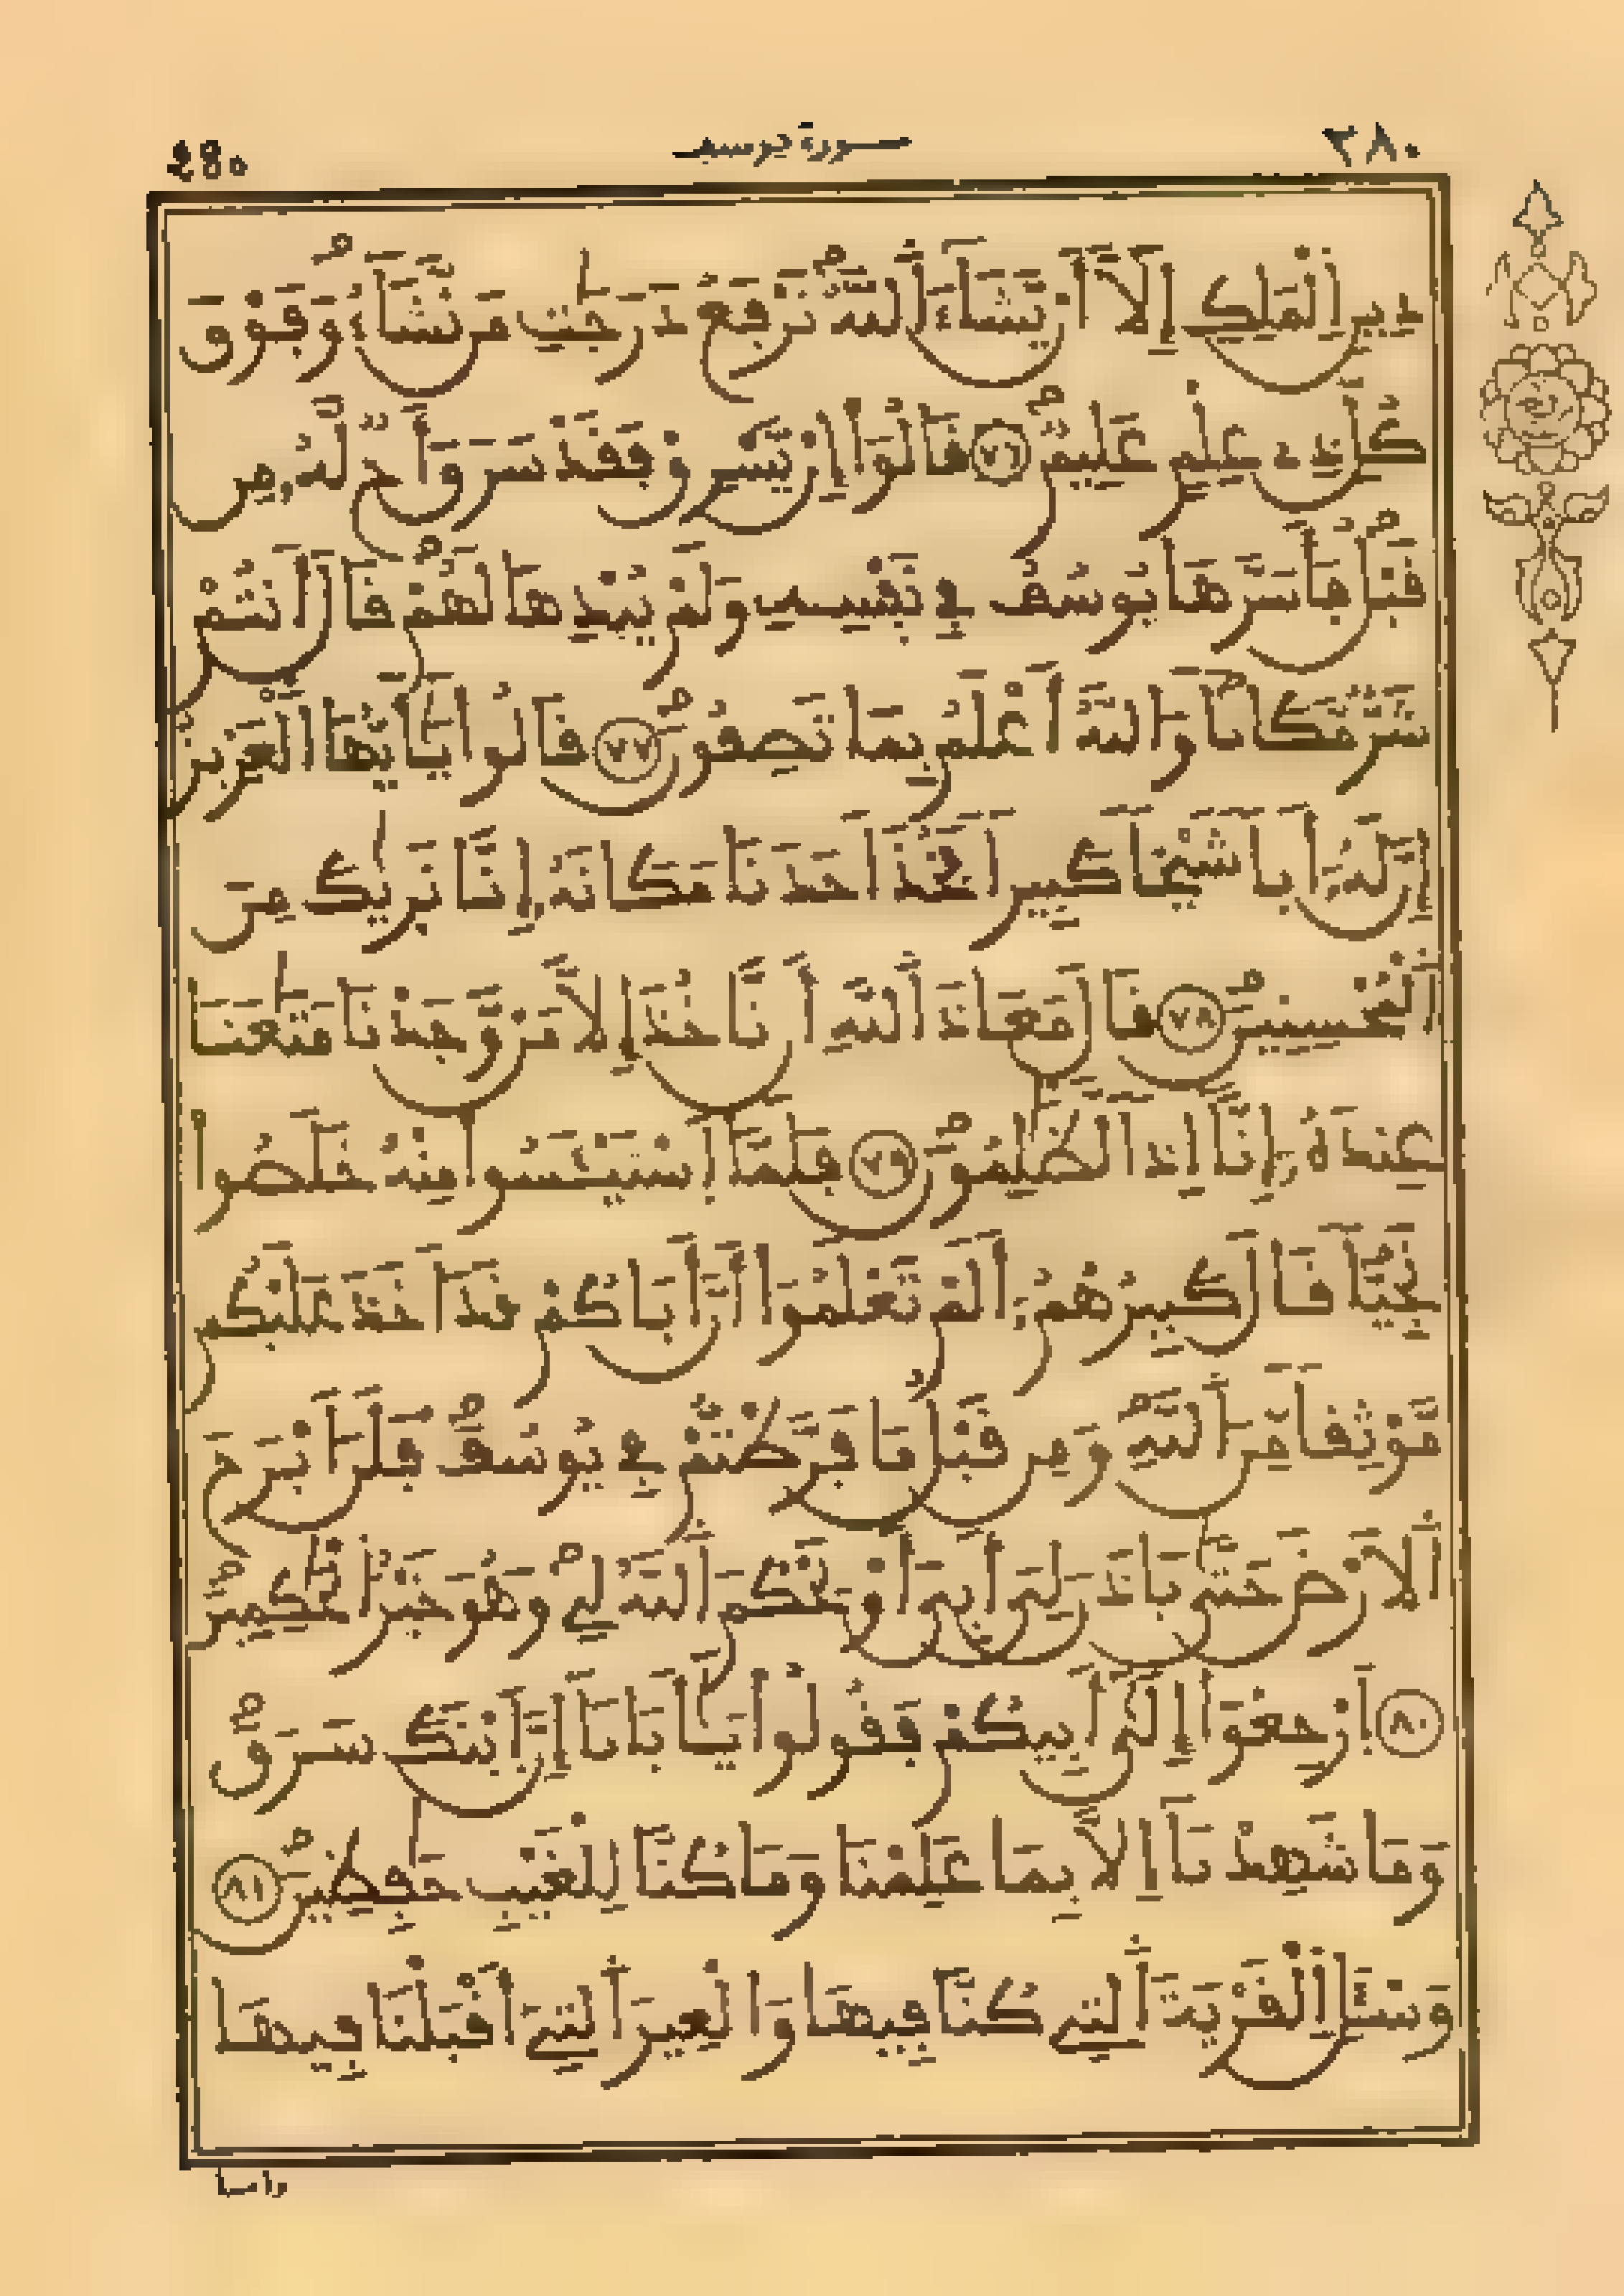 ٢٨٠ سورة يوسف
دِينِ اِلْمَلِكِ إِلَّا أَنْ يَّشَاءَ اَللَّهُ نَرْفَعُ دَرَجَٰتِ مَن نَّشَاءُ وَفَوْقَ
كُلِّ ذِے عِلْمٍ عَلِيمٌ ٧٦ قَالُوا إِنْ يَّسْرِقْ فَقَدْ سَرَقَ أَخٌ لَّهُ مِن
قَبْلُ فَأَسَرَّهَا يُوسُفُ فِے نَفْسِهِ وَلَمْ يُبْدِهَا لَهُمْ قَالَ أَنتُمْ
شَرٌّ مَّكَاناً وَاللَّهُ أَعْلَمُ بِمَا تَصِفُونَ ٧٧ قَالُوا يَٰأَيُّهَا اَلْعَزِيزُ
إِنَّ لَهُ أَباً شَيْخاً كَبِيراً فَخُذَ اَحَدَنَا مَكَانَهُ إِنَّا نَرَىٰكَ مِنَ
اَلْمُحْسِنِينَ ٧٨ قَالَ مَعَاذَ اَللَّهِ أَن نَّأْخُذَ إِلَّا مَنْ وَّجَدْنَا مَتَٰعَنَا
عِندَهُ إِنَّا إِذاً لَّظَٰلِمُونَ ٧٩ فَلَمَّا اَسْتَيْـَٔسُوا مِنْهُ خَلَصُوا
نَجِيّاً قَالَ كَبِيرُهُمْ أَلَمْ تَعْلَمُوا أَنَّ أَبَاكُمْ قَدَ اَخَذَ عَلَيْكُم
مَّوْثِقاً مِّنَ اَللَّهِ وَمِن قَبْلُ مَا فَرَّطتُمْ فِے يُوسُفَ فَلَنَ اَبْرَحَ
اَلْأَرْضَ حَتَّىٰ يَأْذَنَ لِيَ أَبِيَ أَوْ يَحْكُمَ اَللَّهُ لِے وَهُوَ خَيْرُ اُلْحَٰكِمِينَ
٨٠ اَرْجِعُوا إِلَىٰ أَبِيكُمْ فَقُولُوا يَٰأَبَانَا إِنَّ اَبْنَكَ سَرَقَ
وَمَا شَهِدْنَا إِلَّا بِمَا عَلِمْنَا وَمَا كُنَّا لِلْغَيْبِ حَٰفِظِينَ ٨١
وَسْـَٔلِ اِلْقَرْيَةَ اَلتِے كُنَّا فِيهَا وَالْعِيرَ اَلتِے أَقْبَلْنَا فِيهَا